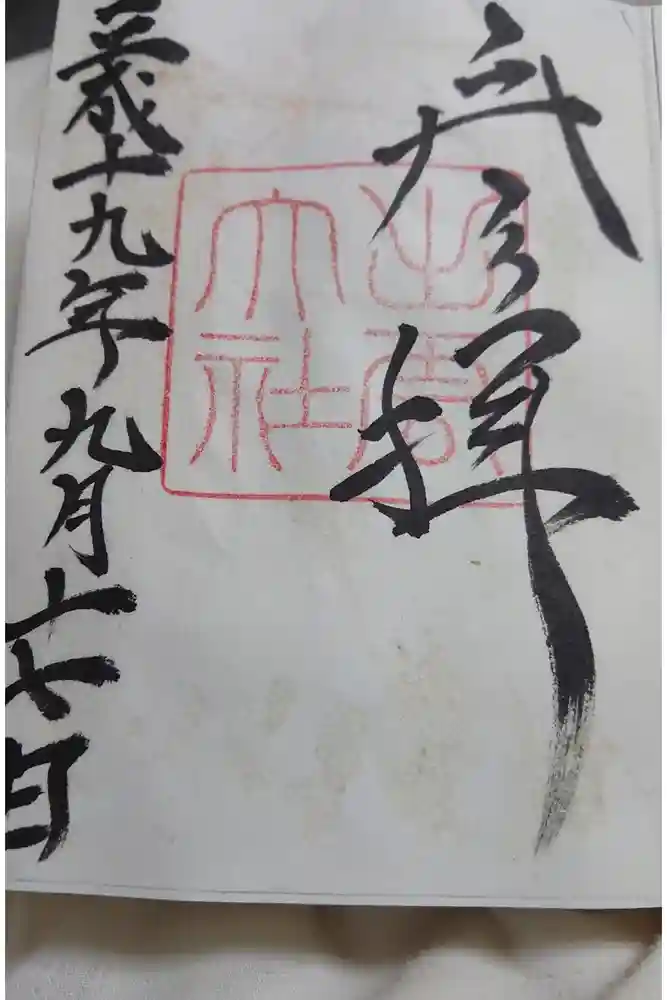 奉拝
出雲
大社
平成十九年九月十七日